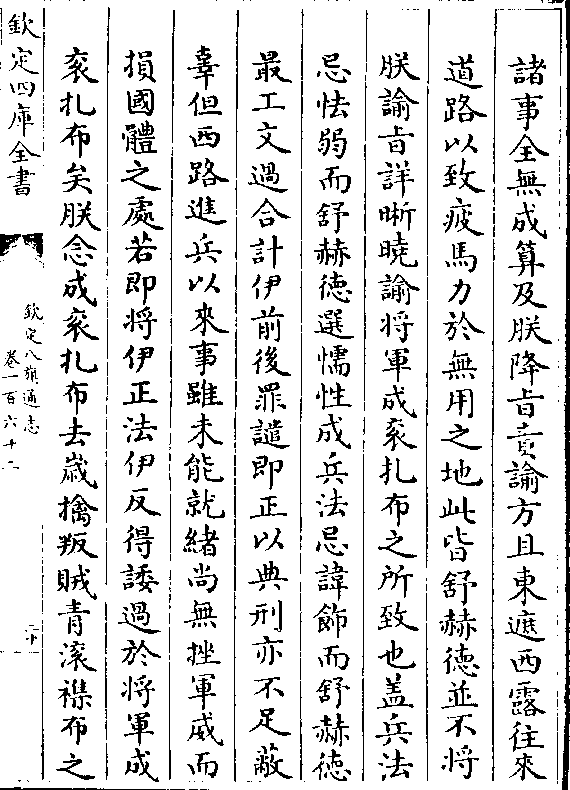 諸事全無成算及朕降㫖責諭方且東遮西露往來
道路以致疲馬力於無用之地此皆舒赫德並不將
朕諭㫖詳晰曉諭將軍成衮扎布之所致也盖兵法
忌怯弱而舒赫德選懦性成兵法忌諱飾而舒赫德
最工文過合計伊前後罪譴即正以典刑亦不足蔽
辜但西路進兵以來事雖未能就緒尚無挫軍威而
損國體之處若即將伊正法伊反得諉過於將軍成
衮扎布矣朕念成衮扎布去嵗擒叛賊青滚襍布之
欽定四庫全書
欽定八旗通志
卷一百六十二